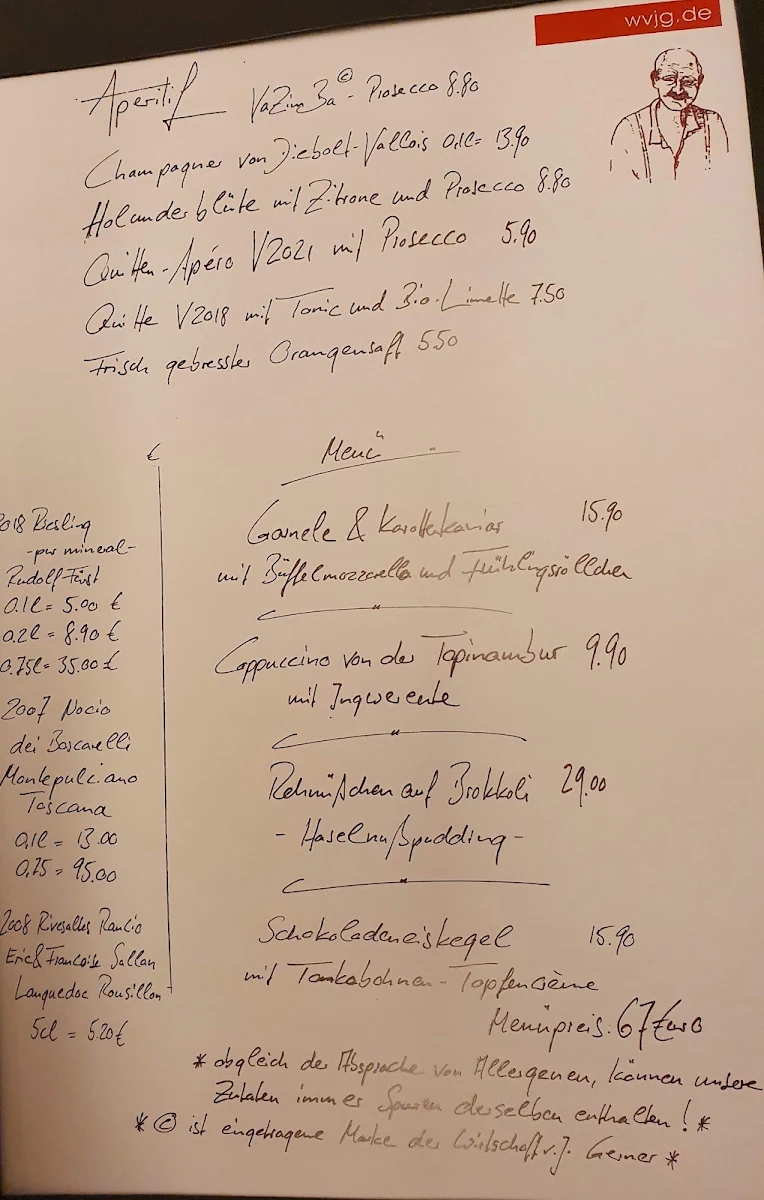 wvjg.de
Aperitif VaZimBa © - Prosecco 8.80
Champagner von Diebolt-Vallois 0,1l = 13.90
Holunderblüte mit Zitrone und Prosecco 8.80
Quitten-Apéro V2021 mit Prosecco 5.90
Quitte V2018 mit Tonic und Bio-Limette 7.50
Frisch gebresster Orangensaft 5.50
Menü
Garnele & Karottenkaviar 15.90
mit Büffelmozzarella und Frühlingsröllchen
Cappuccino von der Topinambur 9.90
mit Ingwerente
Rehnüßchen auf Brokkoli 29.00
- Haselnußpudding -
Schokoladeneiskegel 15.90
mit Tonkabohnen-Topfencrème
Menüpreis: 67 Euro
€
2018 Riesling
- pur mineral -
Rudolf Fürst
0.1l = 5.00 €
0.2l = 8.90 €
0.75l = 35.00 €
2007 Nocio
dei Boscarelli
Montepulciano
Toscana
0,1l = 13.00
0,75 = 95.00
2008 Rivesaltes Rancio
Eric & Francoise Sallan
Languedoc Rousillon
5cl = 5.20 €
* obgleich der Absprache von Allergenen, können unsere
Zutaten immer Spuren derselben enthalten! *
* © ist eingetragene Marke der Wirtschaft v. J. Gerner *